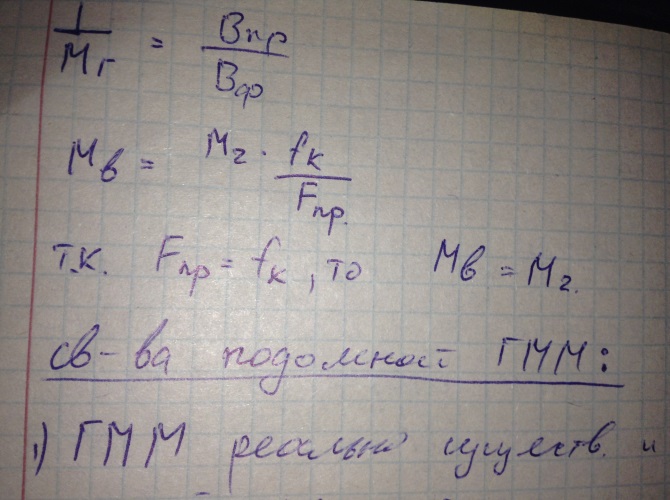 1/Mг = Bпр/Bф
Mв = Mг · fк/Fпр.
т.к. Fпр = fк, то Mв = Mг.
св-ва подомной ГММ:
1) ГММ реально существ. и